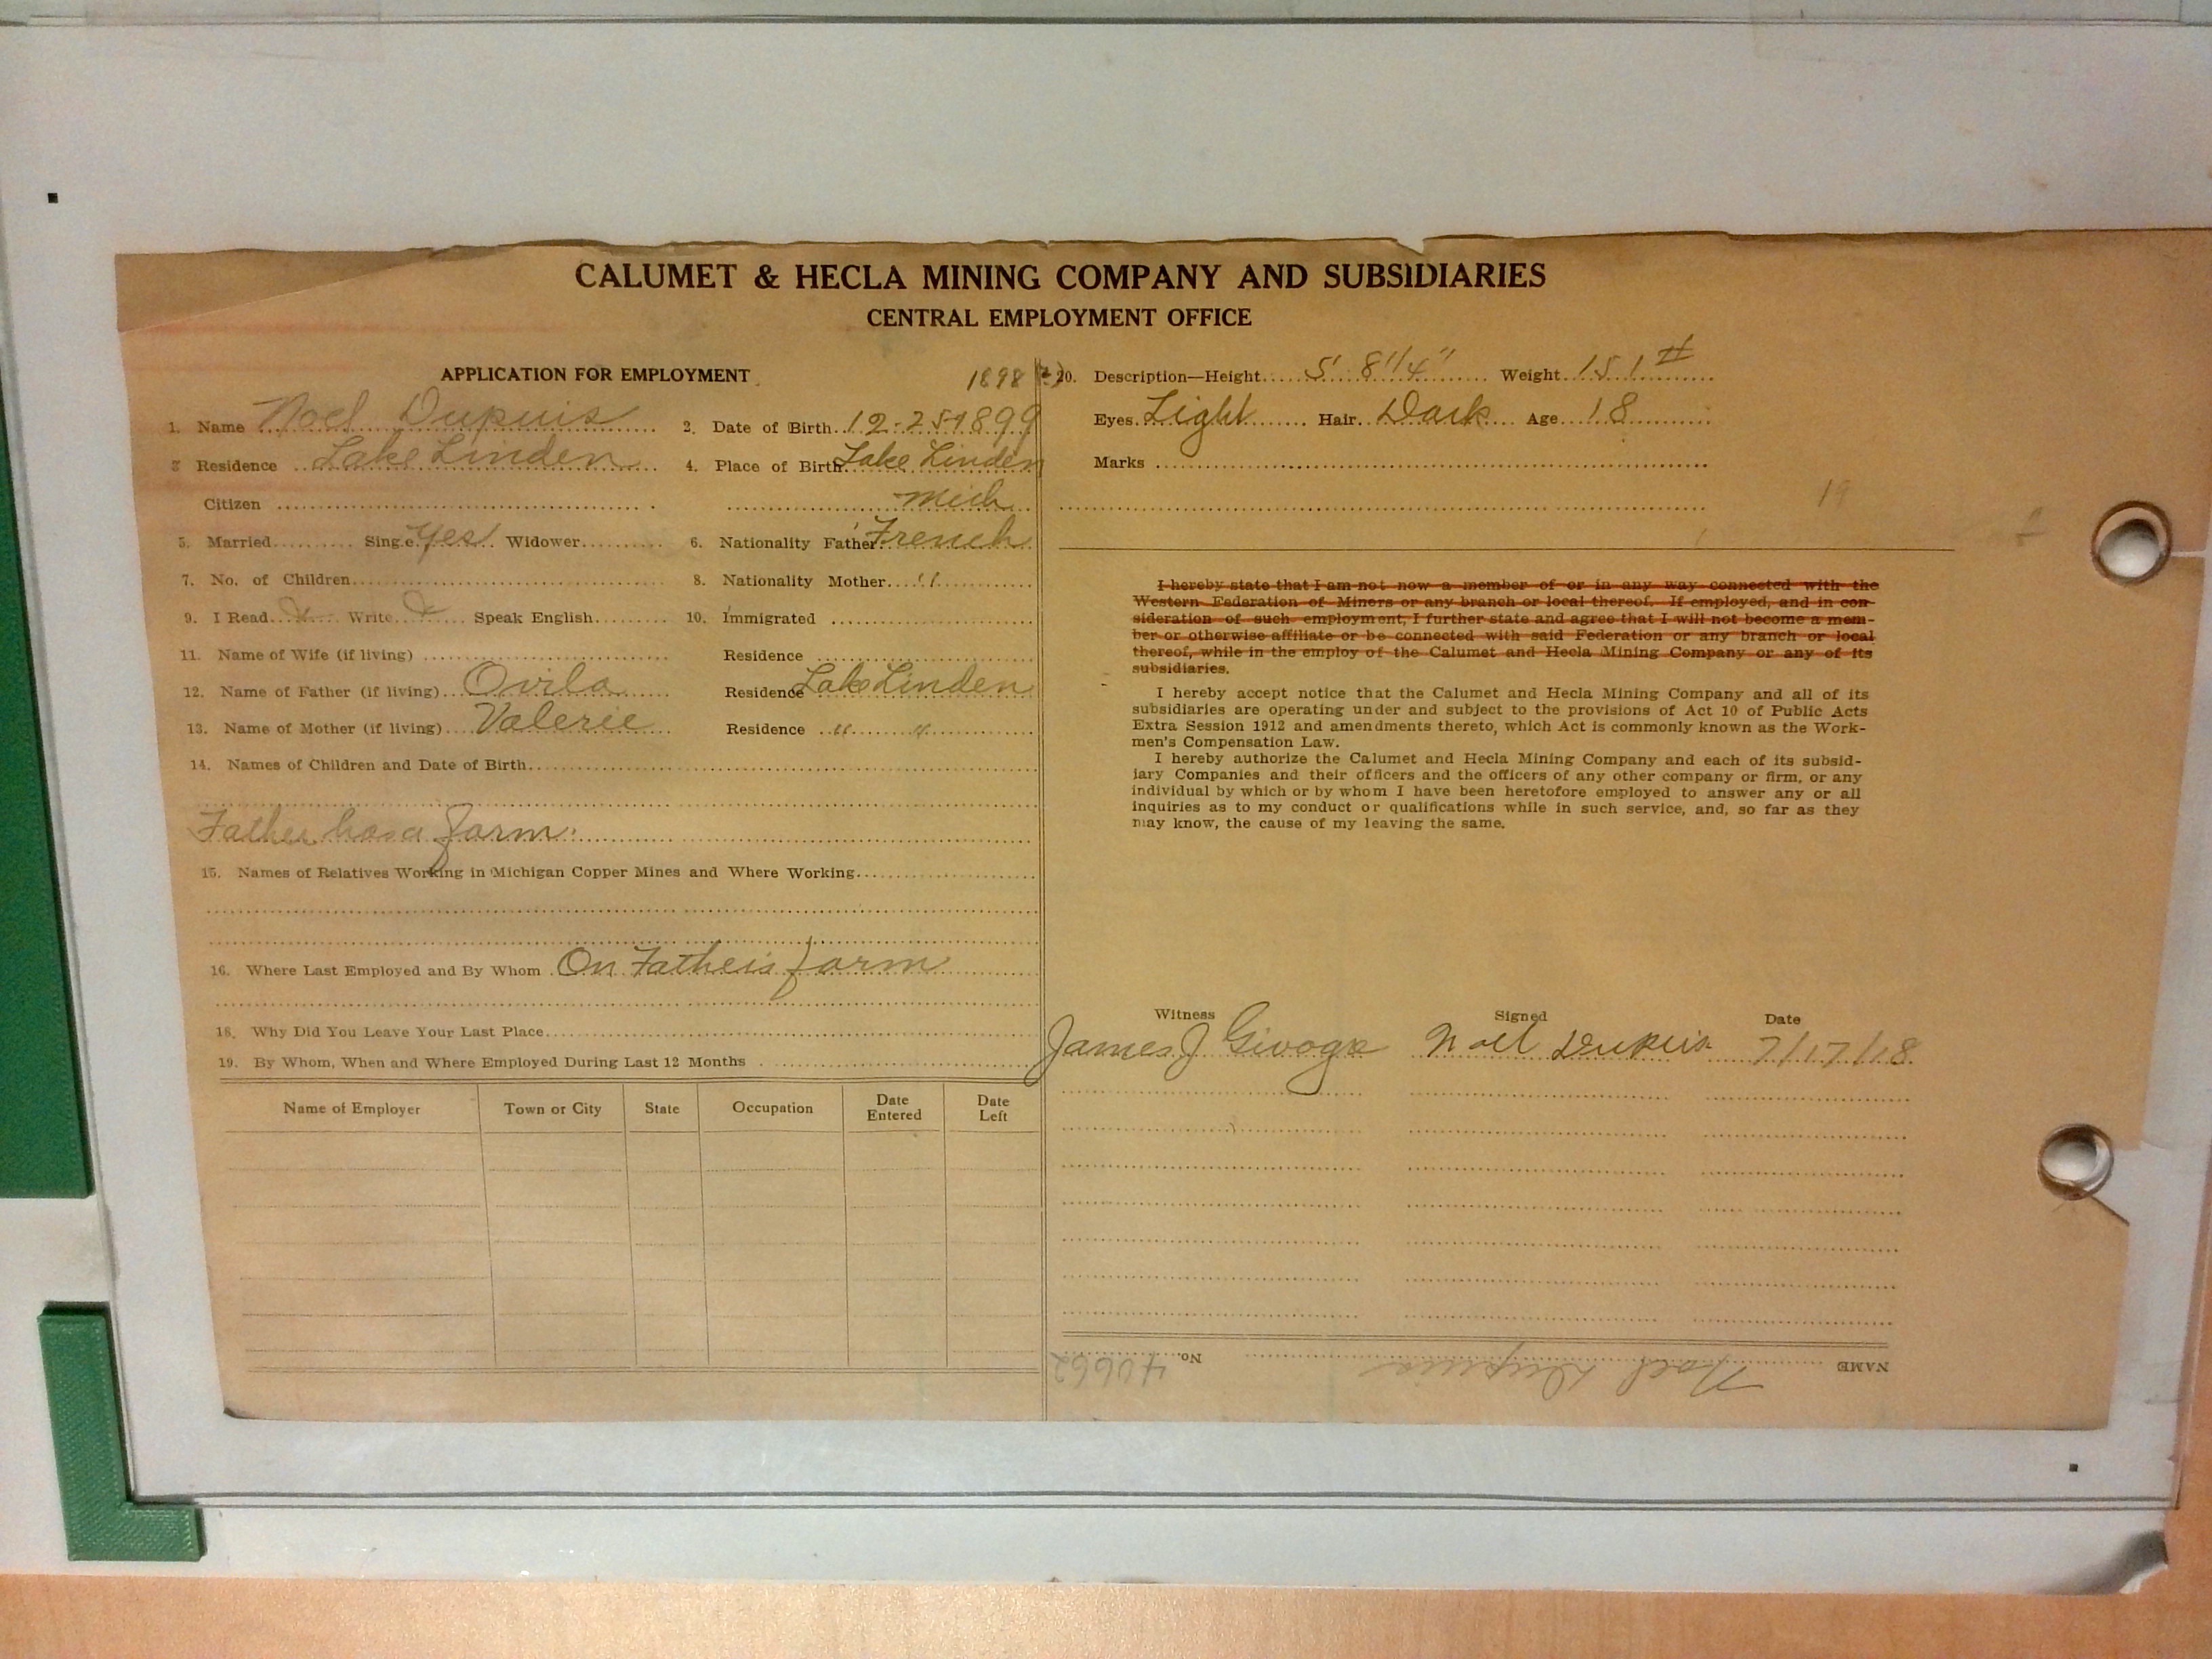 CALUMET & HECLA MINING COMPANY AND SUBSIDIARIES
CENTRAL EMPLOYMENT OFFICE
APPLICATION FOR EMPLOYMENT
1898 (?)
1. Name Noel Dupuis 2. Date of Birth 12-25-1899
3 Residence Lake Linden 4. Place of Birth Lake Linden
Citizen Mich
5. Married Single Yes Widower 6. Nationality Father French
7. No. of Children 8. Nationality Mother "
9. I Read Write Speak English 10. Immigrated
11. Name of Wife (if living) Residence
12. Name of Father (if living) Ovila Residence Lake Linden
13. Name of Mother (if living) Valerie Residence " "
14. Names of Children and Date of Birth
Father has a farm.
15. Names of Relatives Working in Michigan Copper Mines and Where Working
16. Where Last Employed and By Whom On Father's farm
18. Why Did You Leave Your Last Place
19. By Whom, When and Where Employed During Last 12 Months
Name of Employer Town or City State Occupation Date Entered Date Left
20. Description—Height 5' 8 1/4" Weight 151 #
Eyes Light Hair Dark Age 18
Marks
19
I hereby state that I am not now a member of or in any way connected with the
Western Federation of Miners or any branch or local thereof. If employed, and in con-
sideration of such employment, I further state and agree that I will not become a mem-
ber or otherwise affiliate or be connected with said Federation or any branch or local
thereof, while in the employ of the Calumet and Hecla Mining Company or any of its
subsidiaries.
I hereby accept notice that the Calumet and Hecla Mining Company and all of its
subsidiaries are operating under and subject to the provisions of Act 10 of Public Acts
Extra Session 1912 and amendments thereto, which Act is commonly known as the Work-
men's Compensation Law.
I hereby authorize the Calumet and Hecla Mining Company and each of its subsid-
iary Companies and their officers and the officers of any other company or firm, or any
individual by which or by whom I have been heretofore employed to answer any or all
inquiries as to my conduct or qualifications while in such service, and, so far as they
may know, the cause of my leaving the same.
Witness Signed Date
James J Noel Dupuis 7/17/18
NAME Noel Dupuis No. 40662